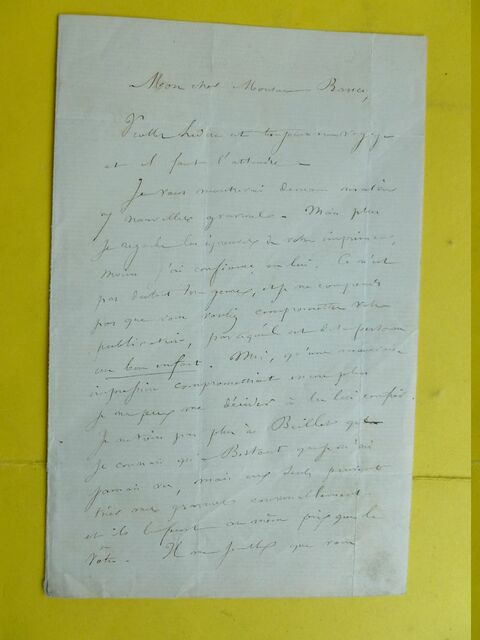 Mon cher Monsieur
Viollet Leduc est toujours en voyage
et il faut l'attendre –
Je vous montrerai demain matin
7 nouvelles gravures – Mais plus
je regarde les épreuves de votre imprimeur,
moins j'ai confiance en lui. Ce n'est
pas du tout son genre, et je ne comprends
pas que vous vouliez compromettre votre
publication, parcequ'il est
un bon enfant. Moi, qu'une mauvaise
impression compromettrait encore plus
je ne peux me décider à les lui confier.
Je ne tiens pas plus à Beillet que
je connais qu'à que je n'ai
jamais vu, mais eux seuls peuvent
tirer mes gravures convenablement
et ils le font au même prix que le
vôtre. Il me semble que vous